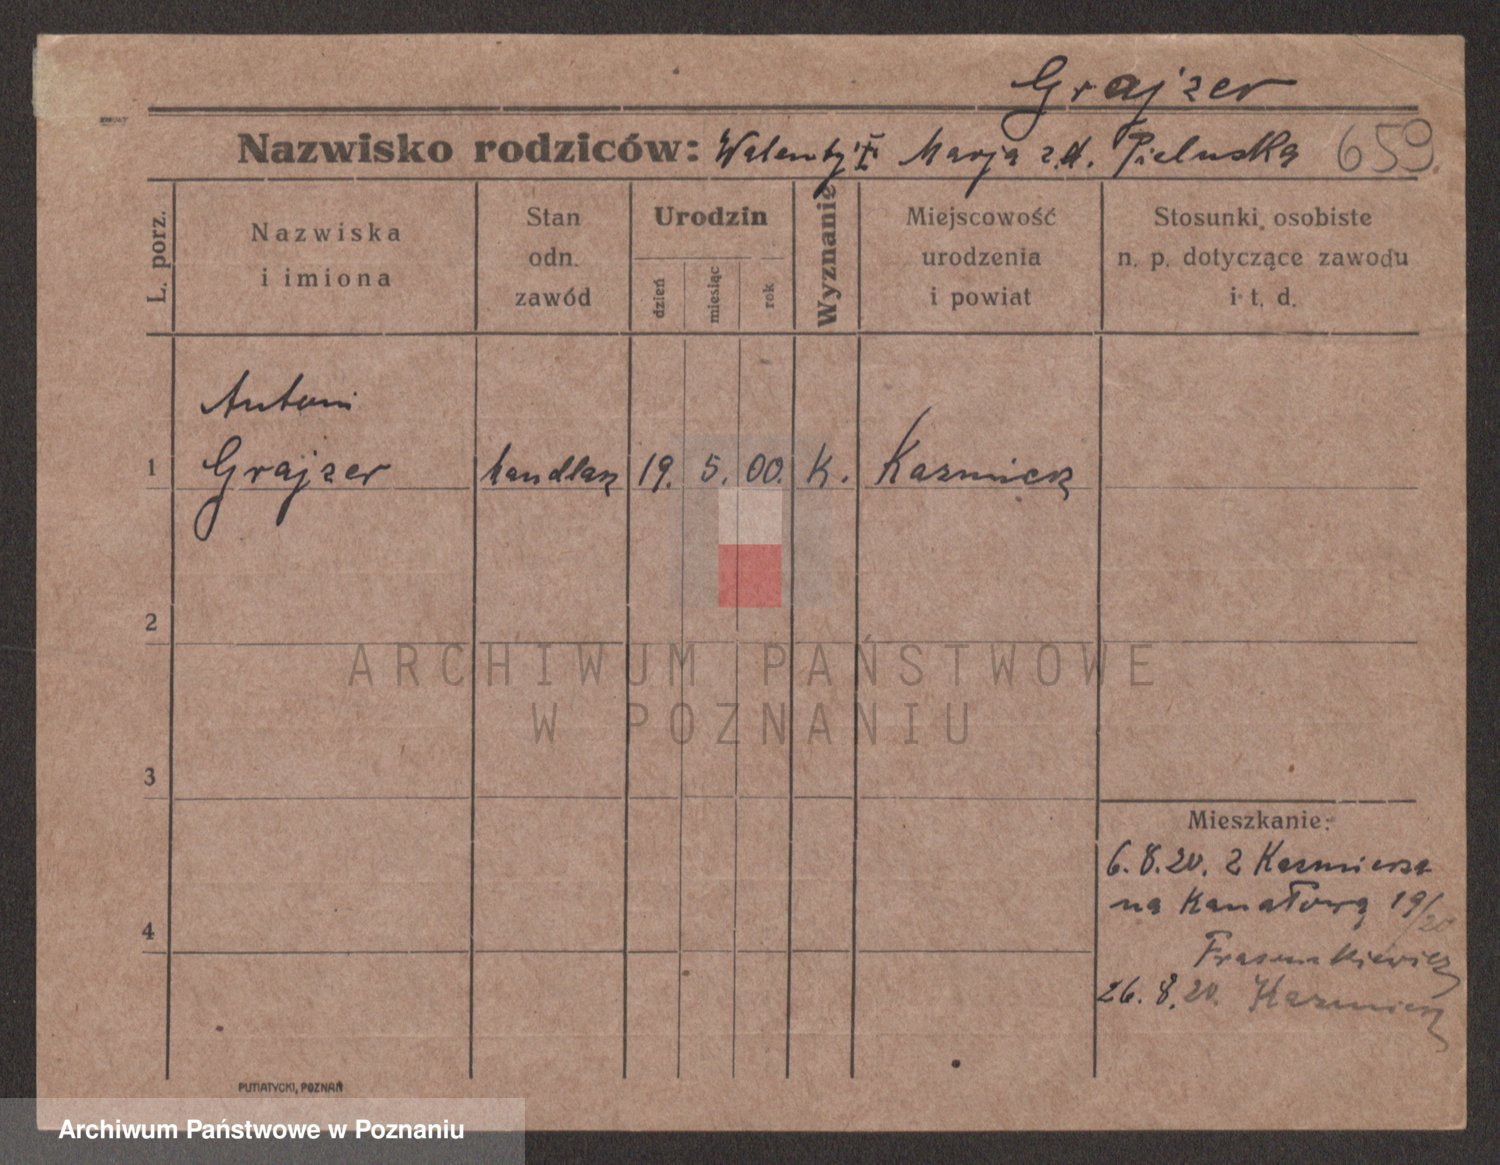 Grajzer
Nazwisko rodziców: Walenty i Marja z d. Pieluska 659.
L. porz.
Nazwiska
i imiona
Stan
odn.
zawód
Urodzin
dzień
miesiąc
rok
Wyznanie
Miejscowość
urodzenia
i powiat
Stosunki osobiste
n. p. dotyczące zawodu
i t. d.
Antoni
1 Grajzer handlarz 19. 5. 00. K. Kazmierz
2
3
4
Mieszkanie:
6.8.20. z Kazmierza
na Kanałową 19/20
26.8.20. Kazmierz
PUTIATYCKI, POZNAŃ
ARCHIWUM PAŃSTWOWE
W POZNANIU
Archiwum Państwowe w Poznaniu